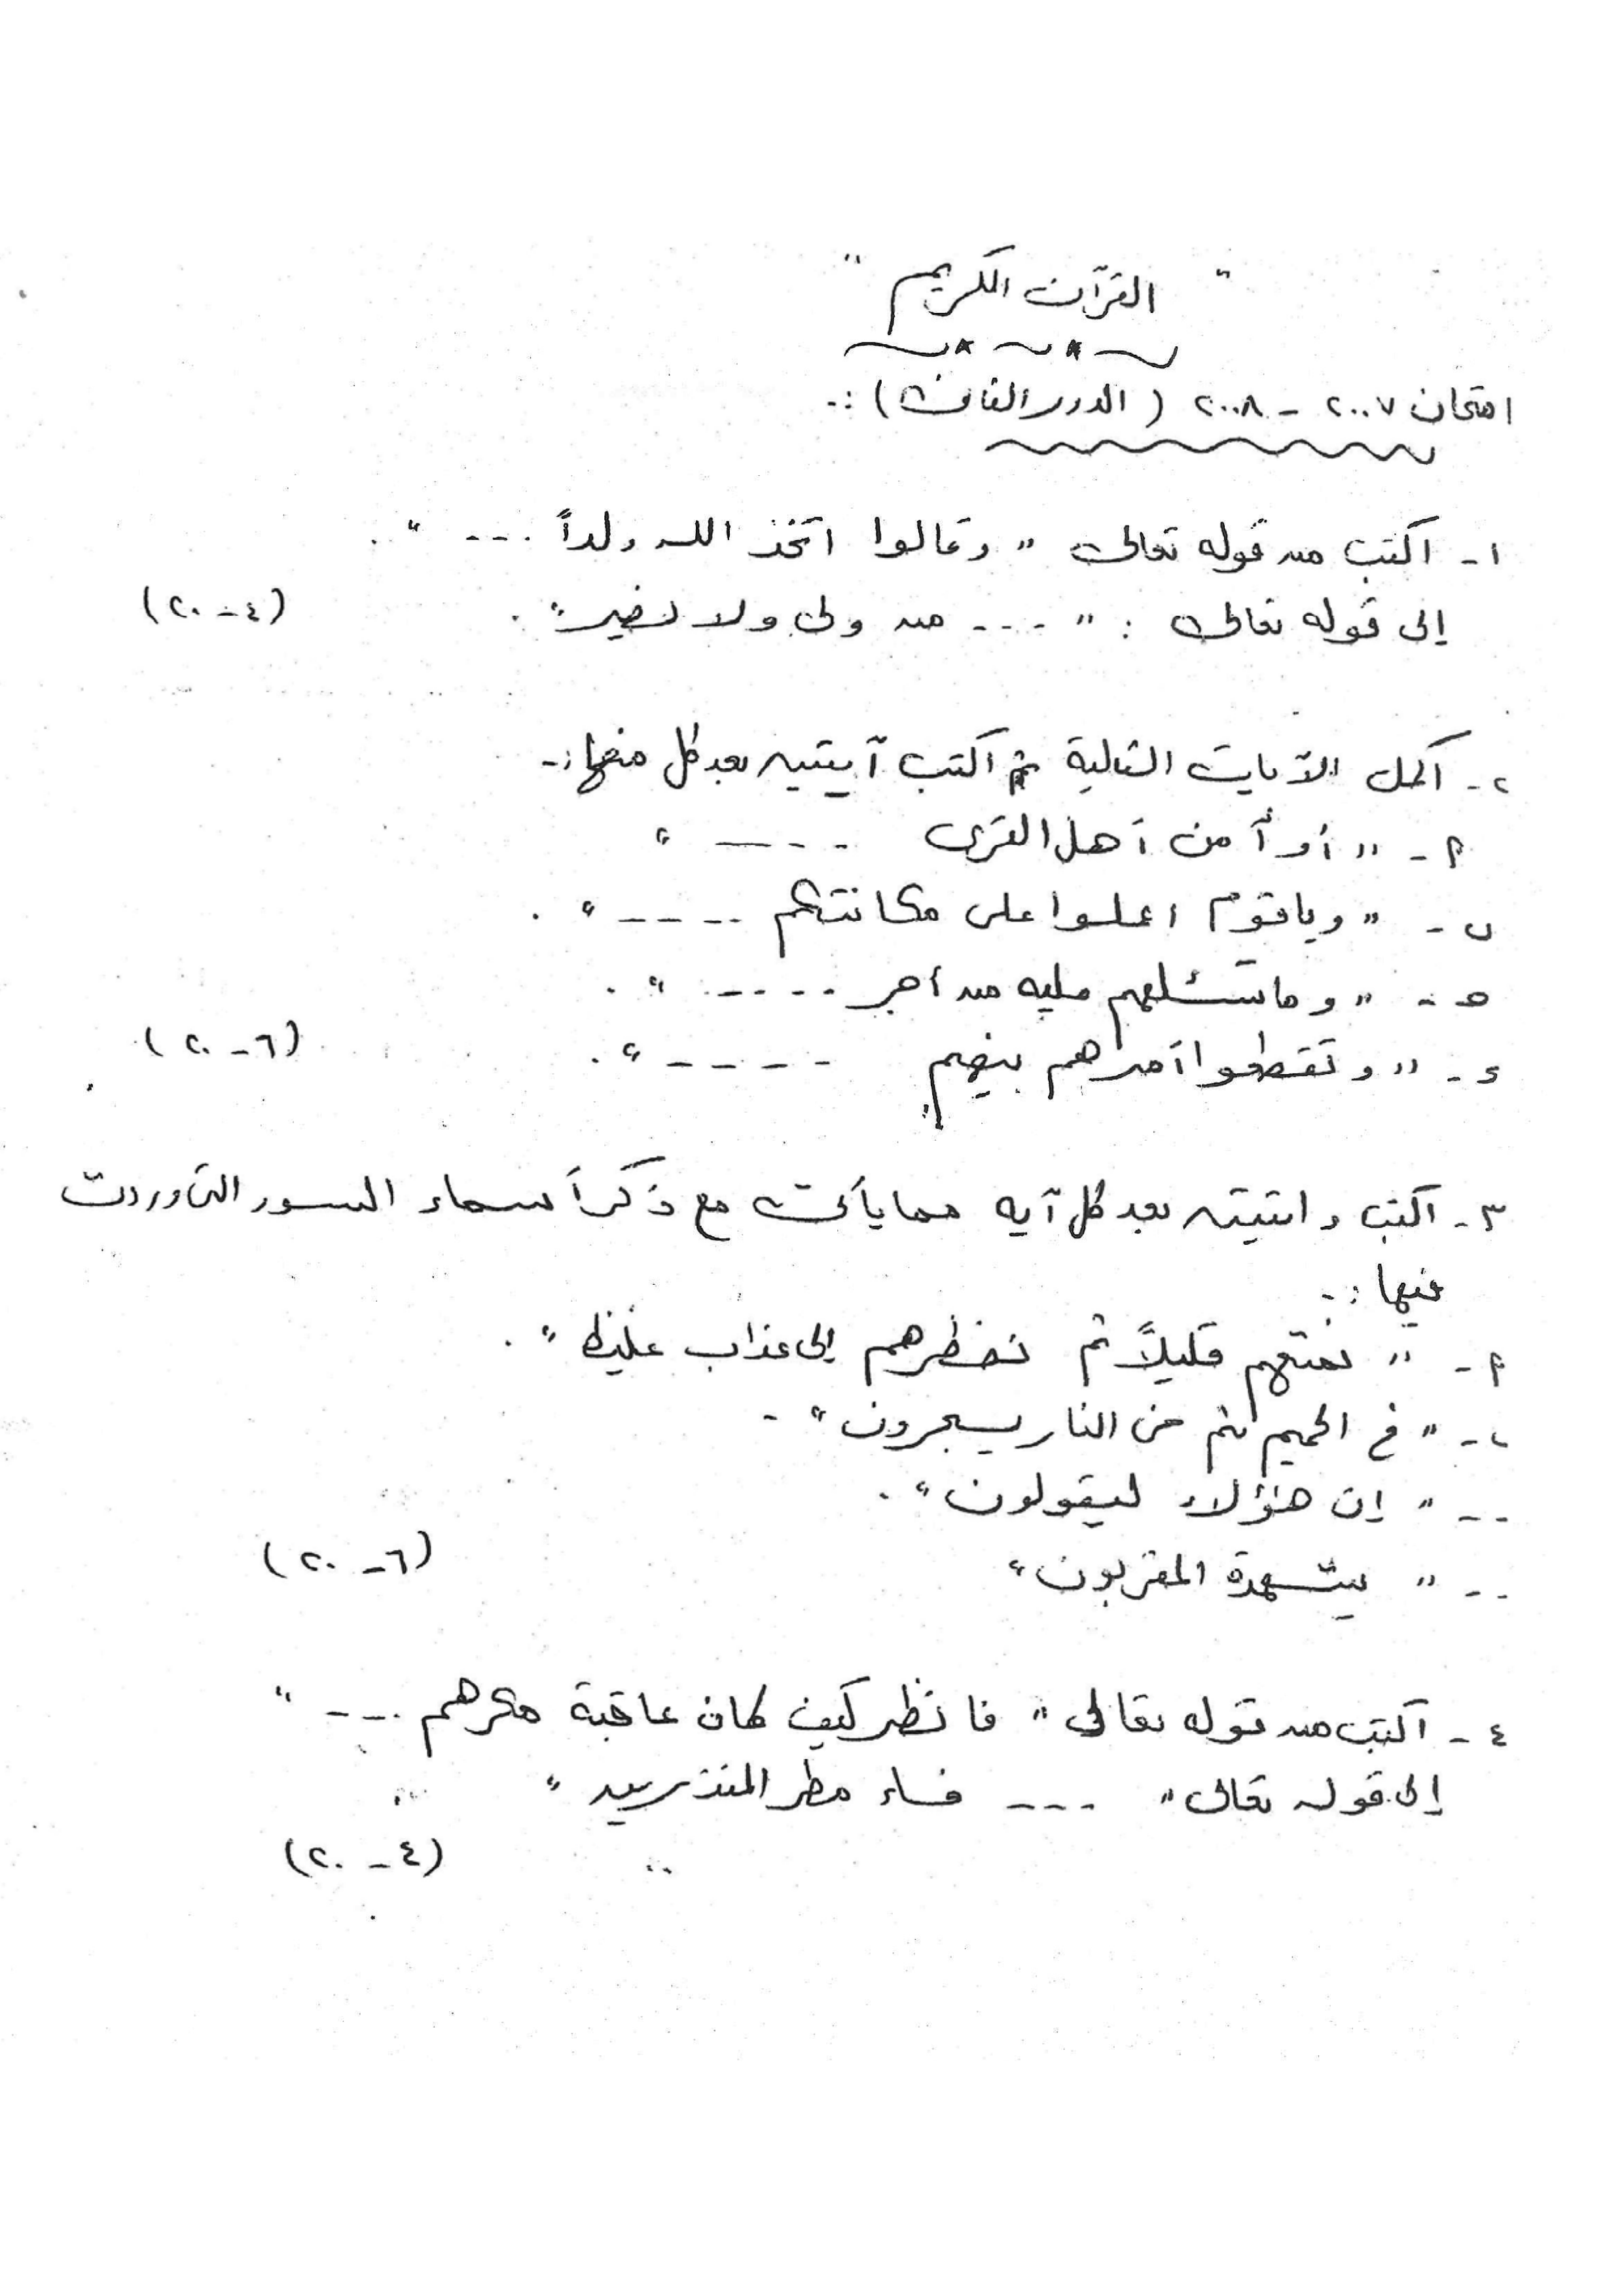 " القرآن الكريم "
امتحان ٢٠٠٧ - ٢٠٠٨ ( الدور الثاني ) :.
١- اكتب من قوله تعالى " وقالوا اتخذ الله ولداً ... " .
إلى قوله تعالى : " ... من ولي ولا نصير " . (٤ - ٢٠)
٢- أكمل الآيات التالية ثم اكتب آيتين بعد كل منها :-
أ - " أو أمن أهل القرى ---- "
ب - " ويا قوم اعملوا على مكانتكم ---- " .
هـ - " وما تسئلهم عليه من أجر ---- " .
د - " وتقطعوا أمرهم بينهم ---- " . (٦ - ٢٠)
٣- اكتب واثنتين بعد كل آيه مما يأتي مع ذكر أسماء السور التي وردت
فيها :-
أ - " نمتعهم قليلاً ثم نضطرهم إلى عذاب غليظ " .
ب - " في الحميم ثم في النار يسجرون " -
-- " إن هؤلاء ليقولون " .
-- " يشهده المقربون " (٦ - ٢٠)
٤- اكتب من قوله تعالى " فانظر كيف كان عاقبة مكرهم --- "
إلى قوله تعالى " --- فساء مطر المنذرين "
(٤ - ٢٠)